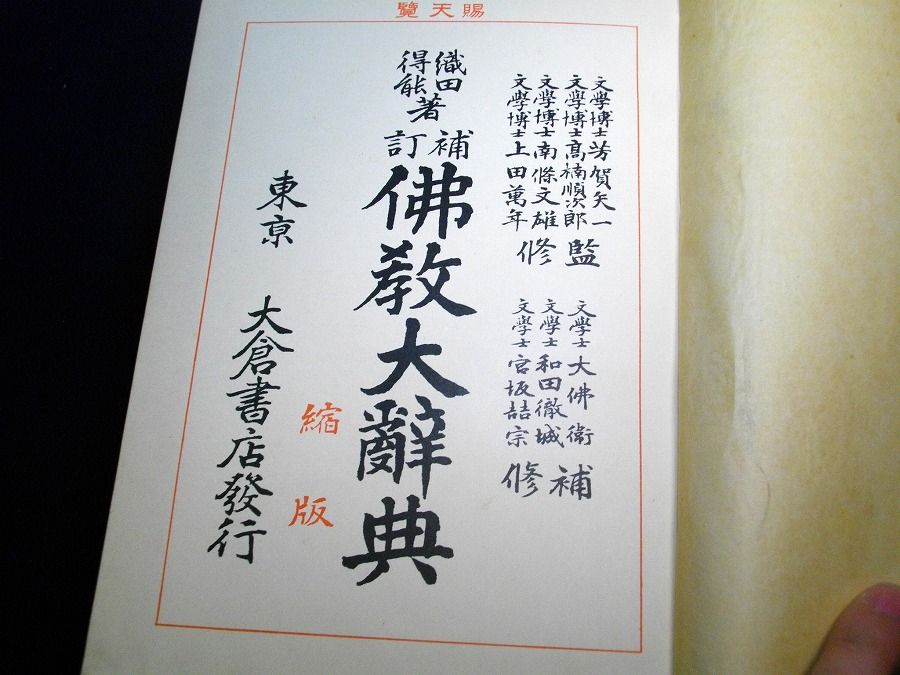 覽天賜
文學博士芳賀矢一
文學博士高楠順次郎
文學博士南條文雄
文學博士上田萬年
監修
文學士大佛衞
文學士和田徹城
文學士宮坂喆宗
補修
織田
得能
著
補訂
佛教大辭典
縮版
東京
大倉書店發行